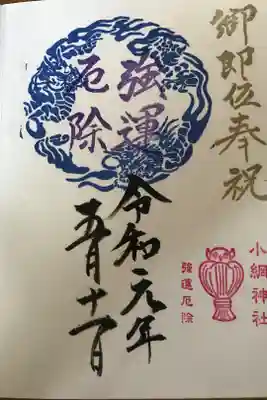 御即位奉祝
強運
厄除
令和元年
五月十一日
小網神社
強運厄除